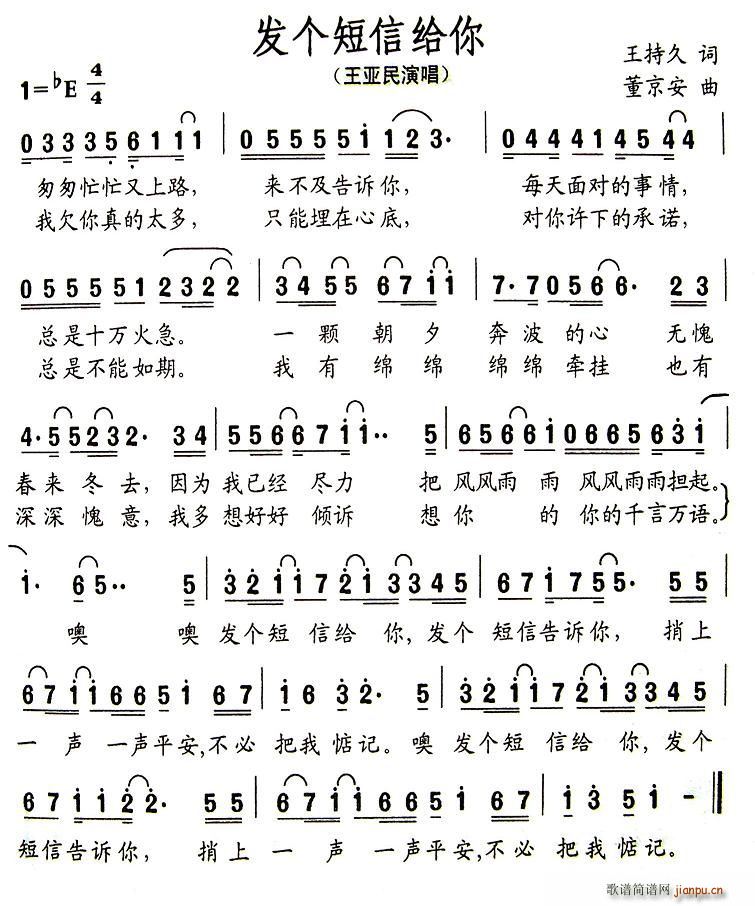 发个短信给你
（王亚民演唱）
王持久 词
董京安 曲
1=♭E 4/4
0 3 3 3 5 6 1 1 1 | 0 5 5 5 5 1 1 2 3· | 0 4 4 4 1 4 5 4 4
匆匆忙忙又上路， 来不及告诉你， 每天面对的事情，
我欠你真的太多， 只能埋在心底， 对你许下的承诺，
0 5 5 5 5 1 2 3 2 2 | 3 4 5 5 6 7 1 1 | 7· 7 0 5 6 6· 2 3
总是十万火急。 一颗朝夕 奔波的心 无愧
总是不能如期。 我有绵绵 绵绵牵挂 也有
4· 5 5 2 3 2· 3 4 | 5 5 6 6 7 1 1·· 5 | 6 5 6 6 1 0 6 6 5 6 3 1
春来冬去，因为我已经尽力 把风风雨雨风风雨雨担起。
深深愧意，我多想好好倾诉 想你的你的千言万语。
1· 6 5·· 5 | 3 2 1 1 7 2 1 3 3 4 5 | 6 7 1 7 5 5· 5 5
噢 噢发个短信给你，发个短信告诉你， 捎上
6 7 1 1 6 6 5 1 6 7 | 1 6 3 2· 5 | 3 2 1 1 7 2 1 3 3 4 5
一声一声平安,不必把我惦记。噢发个短信给你，发个
6 7 1 1 2 2· 5 5 | 6 7 1 1 6 6 5 1 6 7 | 1 3 5 1 - ‖
短信告诉你， 捎上一声一声平安,不必把我惦记。
歌谱简谱网
jianpu.cn